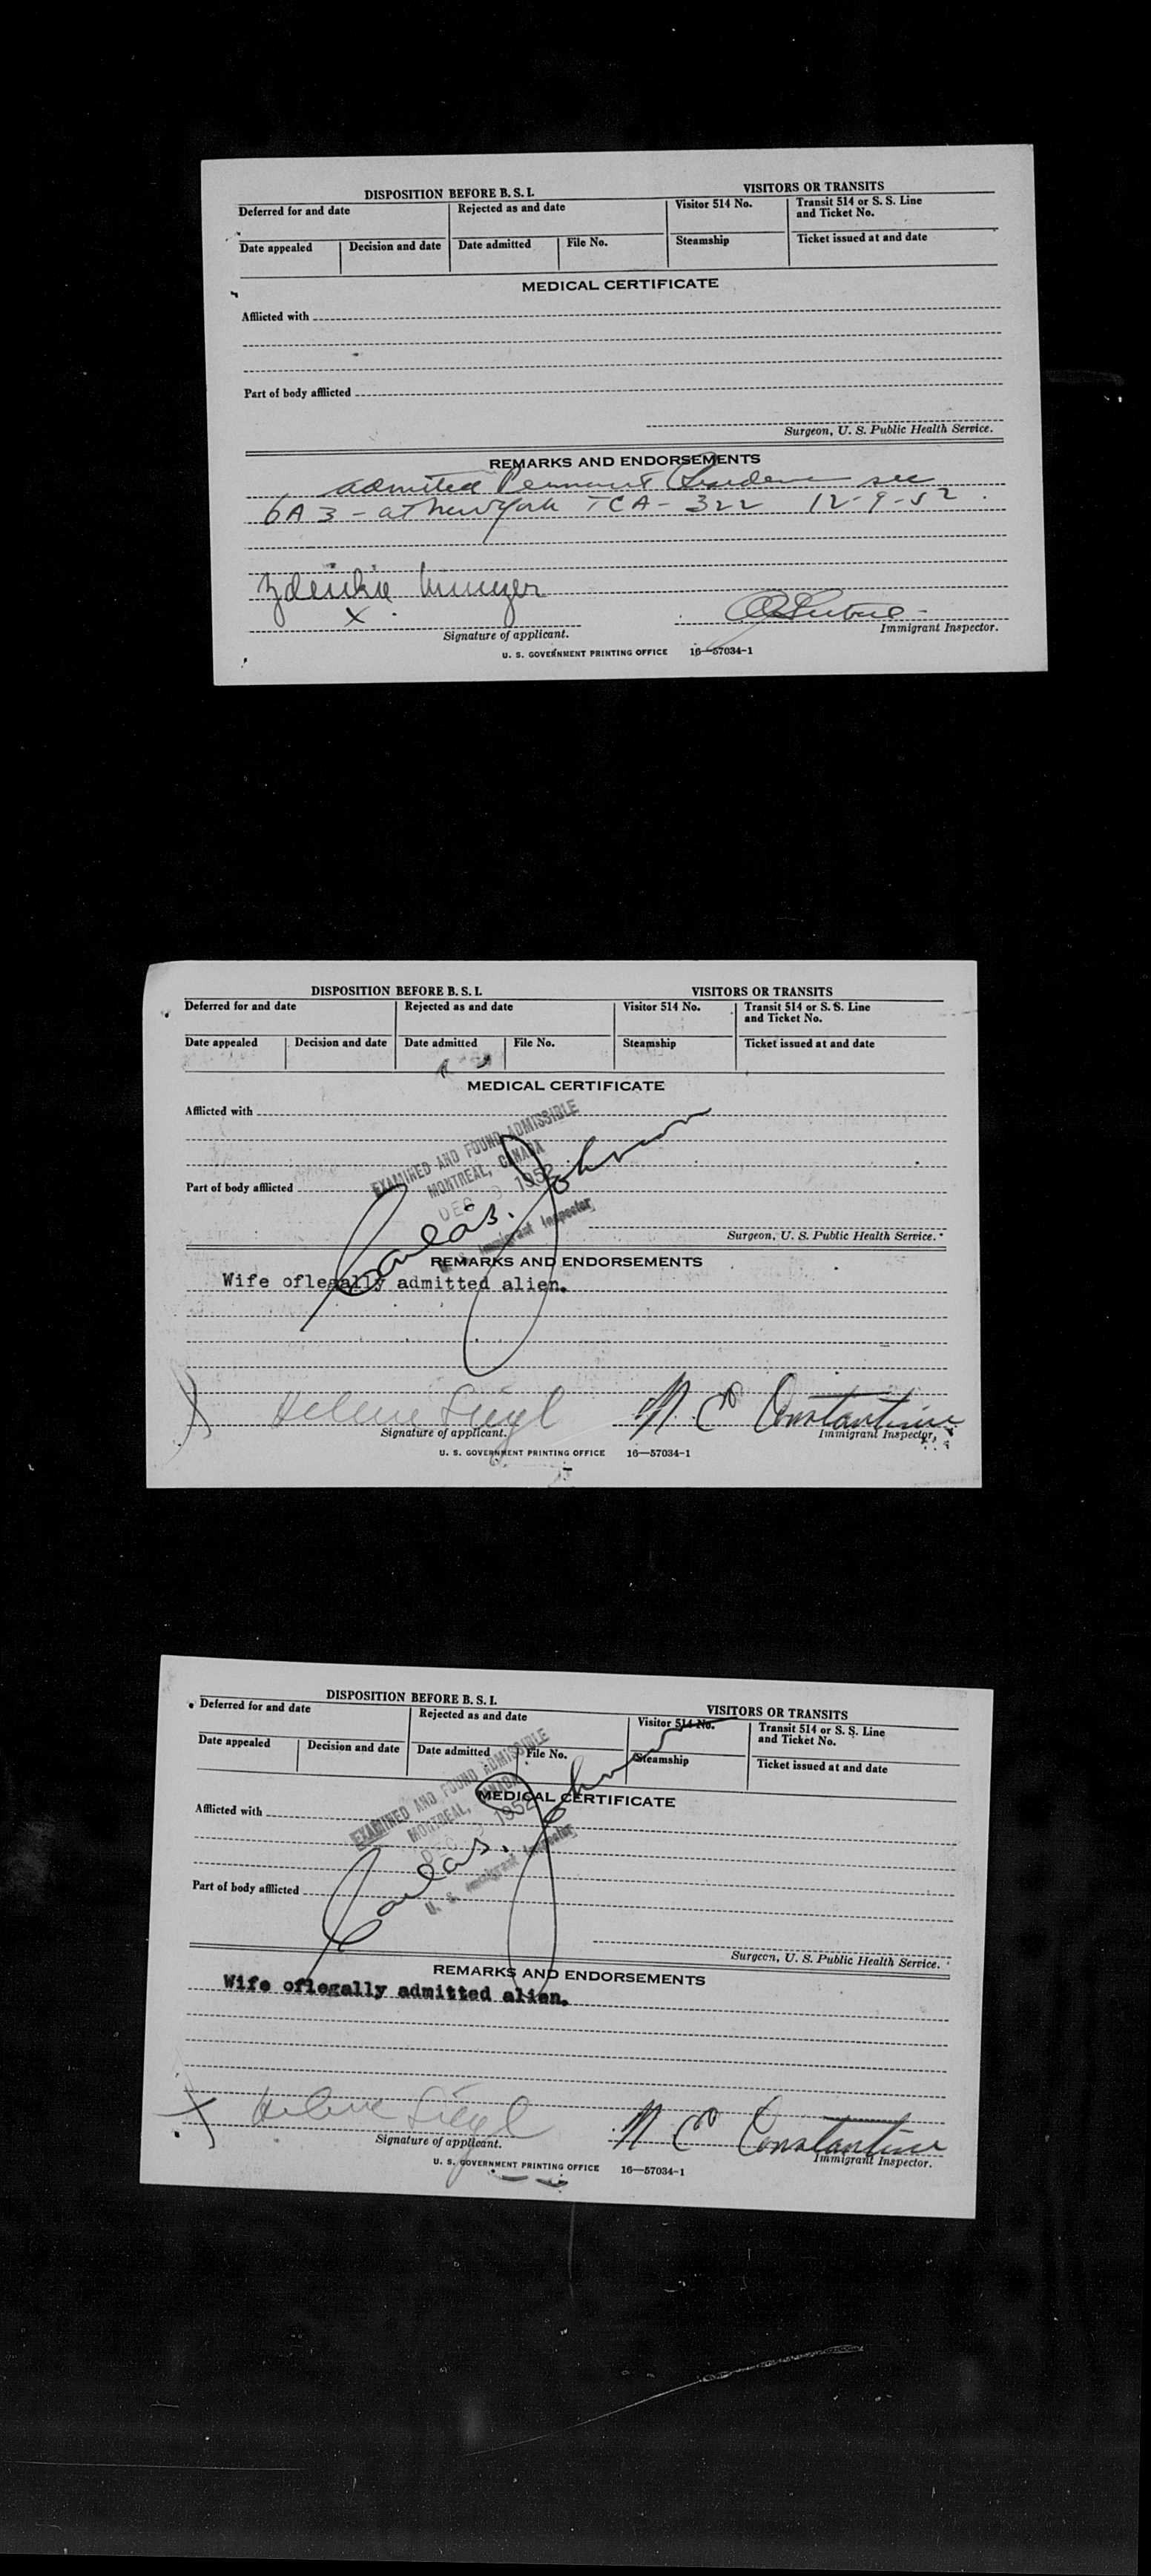 DISPOSITION BEFORE B. S. I.
VISITORS OR TRANSITS
Deferred for and date
Rejected as and date
Visitor 514 No.
Transit 514 or S. S. Line
and Ticket No.
Date appealed
Decision and date
Date admitted
File No.
Steamship
Ticket issued at and date
MEDICAL CERTIFICATE
Afflicted with
Part of body afflicted
Surgeon, U. S. Public Health Service.
REMARKS AND ENDORSEMENTS
admitted sec
6A3 - at New York TCA - 322 12-9-52
X
Signature of applicant.
Immigrant Inspector.
U. S. GOVERNMENT PRINTING OFFICE 16—57034-1
DISPOSITION BEFORE B. S. I.
VISITORS OR TRANSITS
Deferred for and date
Rejected as and date
Visitor 514 No.
Transit 514 or S. S. Line
and Ticket No.
Date appealed
Decision and date
Date admitted
File No.
Steamship
Ticket issued at and date
MEDICAL CERTIFICATE
Afflicted with
EXAMINED AND FOUND ADMISSIBLE
MONTREAL, CANADA
DEC 1952
Part of body afflicted
Johnson
U. S. Immigrant Inspector
Surgeon, U. S. Public Health Service.
REMARKS AND ENDORSEMENTS
Wife oflegally admitted alien.
X Helene Siegl
N C Constantine
Signature of applicant.
Immigrant Inspector.
U. S. GOVERNMENT PRINTING OFFICE 16—57034-1
DISPOSITION BEFORE B. S. I.
VISITORS OR TRANSITS
Deferred for and date
Rejected as and date
Visitor 514 No.
Transit 514 or S. S. Line
and Ticket No.
Date appealed
Decision and date
Date admitted
File No.
Steamship
Ticket issued at and date
EXAMINED AND FOUND ADMISSIBLE
MONTREAL, CANADA
DEC 1952
MEDICAL CERTIFICATE
Afflicted with
Johnson
U. S. Immigrant Inspector
Part of body afflicted
Surgeon, U. S. Public Health Service.
REMARKS AND ENDORSEMENTS
Wife oflegally admitted alien.
X Helene Siegl
N C Constantine
Signature of applicant.
Immigrant Inspector.
U. S. GOVERNMENT PRINTING OFFICE 16—57034-1